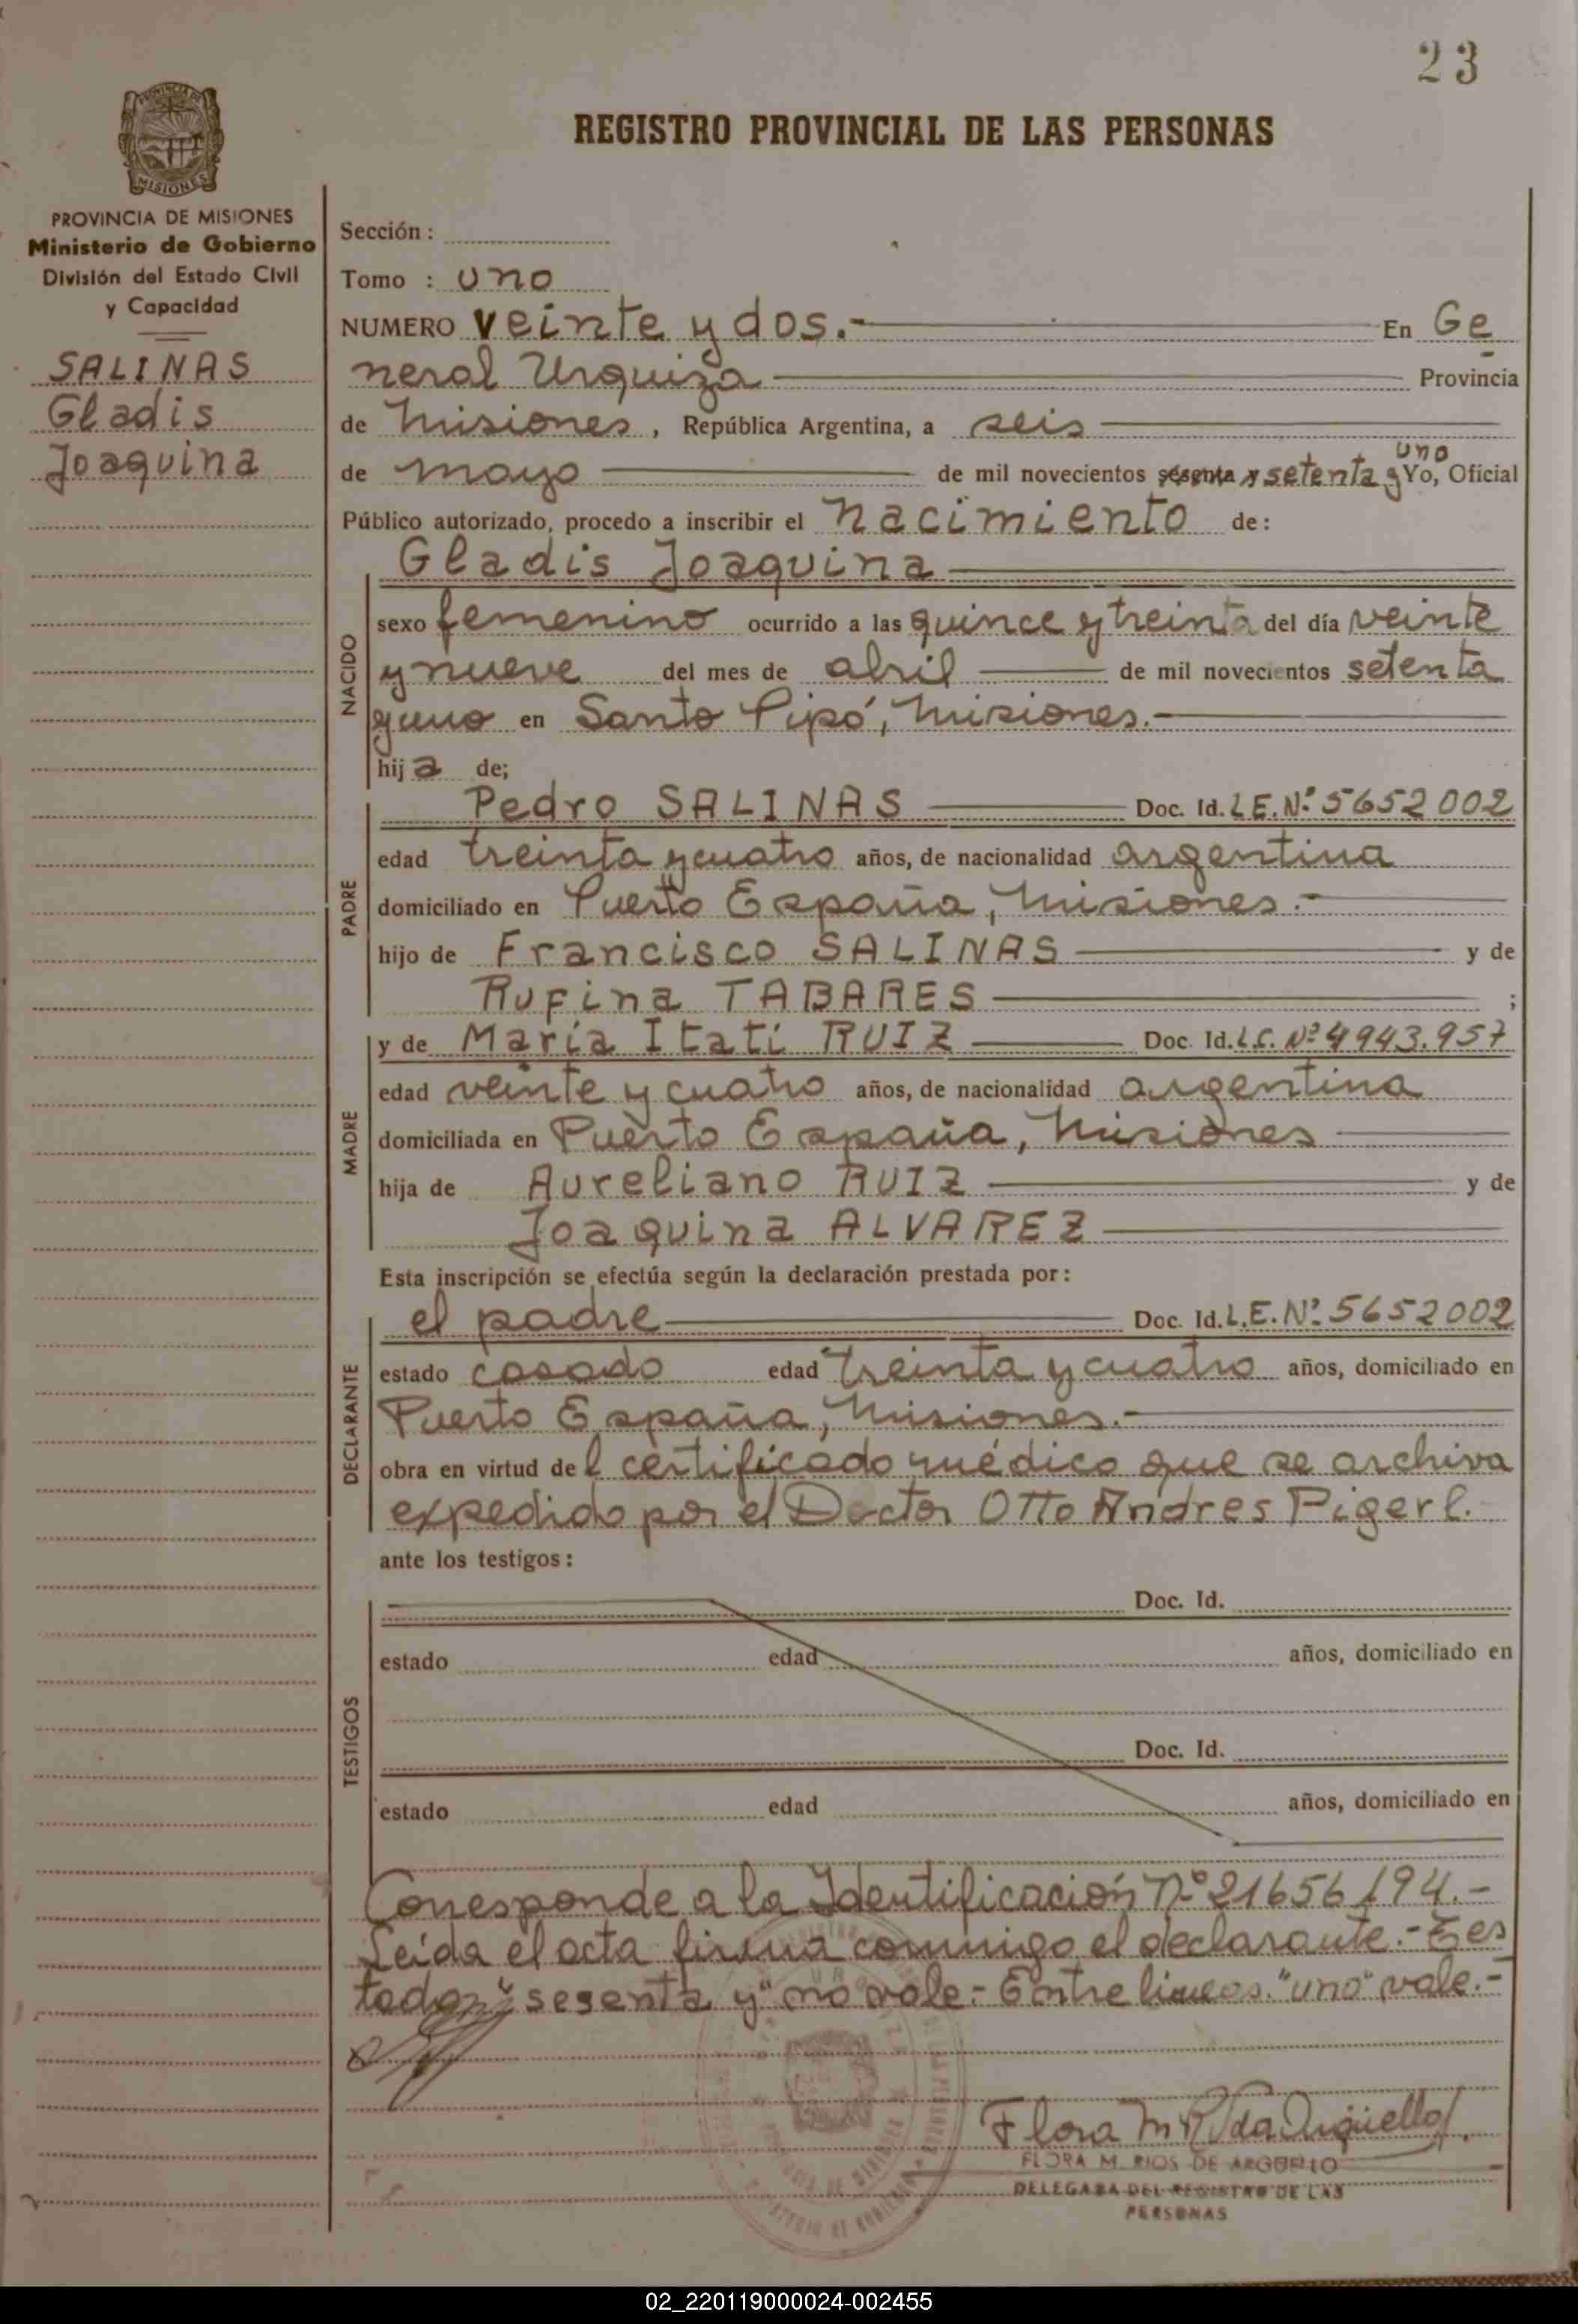 23
REGISTRO PROVINCIAL DE LAS PERSONAS
PROVINCIA DE
MISIONES
PROVINCIA DE MISIONES
Ministerio de Gobierno
División del Estado Civil
y Capacidad
SALINAS
Gladis
Joaquina
Sección :
Tomo : uno
NUMERO veinte y dos.- En Ge
neral Urquiza Provincia
de Misiones, República Argentina, a seis
uno
de mayo de mil novecientos sesenta y setenta y Yo, Oficial
Público autorizado, procedo a inscribir el nacimiento de:
Gladis Joaquina
NACIDO
sexo femenino ocurrido a las quince y treinta del día veinte
y nueve del mes de abril de mil novecientos setenta
y uno en Santo Pipó, Misiones.-
hija de;
PADRE
Pedro SALINAS Doc. Id. L.E. Nº 5652002
edad treinta y cuatro años, de nacionalidad argentina
domiciliado en Puerto España, Misiones.-
hijo de Francisco SALINAS y de
Rufina TABARES ;
MADRE
y de María Itatí RUIZ Doc. Id. L.C. Nº 4943.957
edad veinte y cuatro años, de nacionalidad argentina
domiciliada en Puerto España, Misiones
hija de Aureliano RUIZ y de
Joaquina ALVAREZ
Esta inscripción se efectúa según la declaración prestada por:
DECLARANTE
el padre Doc. Id. L.E. Nº 5652002
estado casado edad treinta y cuatro años, domiciliado en
Puerto España, Misiones.-
obra en virtud del certificado médico que se archiva
expedido por el Doctor Otto Andres Pigerl.-
ante los testigos:
TESTIGOS
Doc. Id.
estado edad años, domiciliado en
Doc. Id.
estado edad años, domiciliado en
Corresponde a la Identificación Nº 21656194.-
Leída el acta firma conmigo el declarante.- Tes
tado: "sesenta y" no vale.- Entre líneas: "uno" vale.-
Flora M R Vda Argüello
FLORA M. RIOS DE ARGUELLO
DELEGADA DEL REGISTRO DE LAS
PERSONAS
02_220119000024-002455